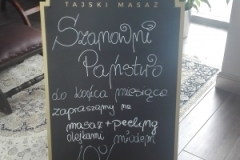 TAJSKI MASAŻ
Szanowni
Państwo
do końca miesiąca
zapraszamy na
masaż + peeling
olejkami miodem